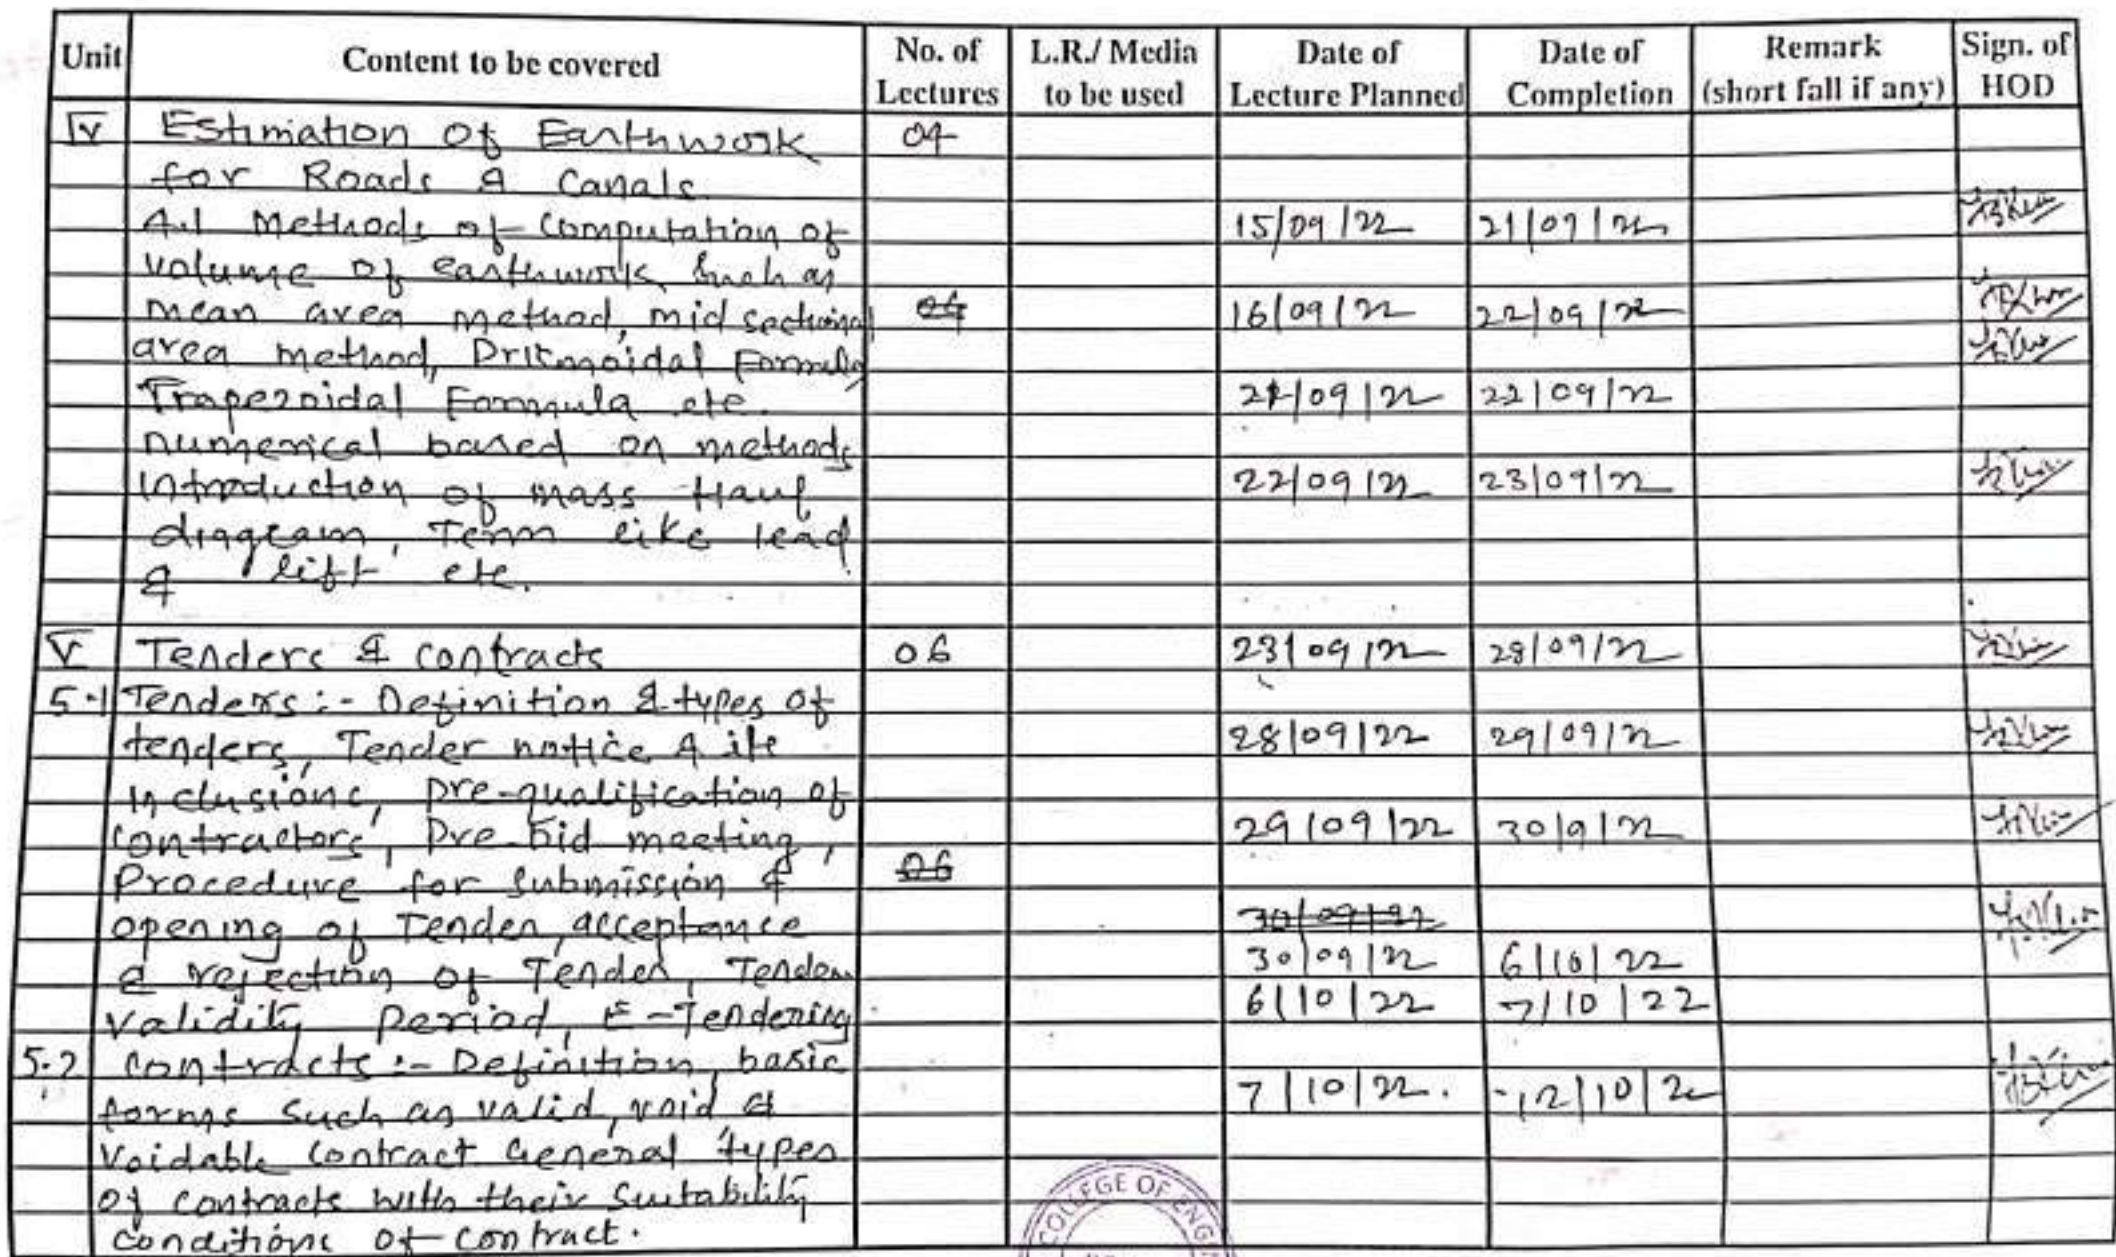 Unit Content to be covered No. of Lectures L.R./ Media to be used Date of Lecture Planned Date of Completion Remark (short fall if any) Sign. of HOD
IV Estimation of Earthwork 04
for Roads & Canals
4.1 Methods of Computation of 15/09/22 21/09/22
volume of earthwork such as
mean area method, mid sectional 04 16/09/22 22/09/22
area method, Prismoidal Formula
Trapezoidal Formula etc. 21/09/22 22/09/22
numerical based on methods
Introduction of mass Haul 22/09/22 23/09/22
diagram, Term like lead
& lift etc.
V Tenders & contracts 06 23/09/22 28/09/22
5.1 Tenders:- Definition & types of
tenders, Tender notice & its 28/09/22 29/09/22
inclusions, pre-qualification of
contractors, Pre-bid meeting, 29/09/22 30/9/22
Procedure for submission & 06
opening of Tender, acceptance 30/09/22
& rejection of Tender, Tender 30/09/22 6/10/22
validity period, E-Tendering 6/10/22 7/10/22
5.2 contracts:- Definition, basic
forms such as valid, void & 7/10/22. 12/10/22
Voidable Contract General types
of contracts with their Suitability
conditions of contract.
COLLEGE OF ENG